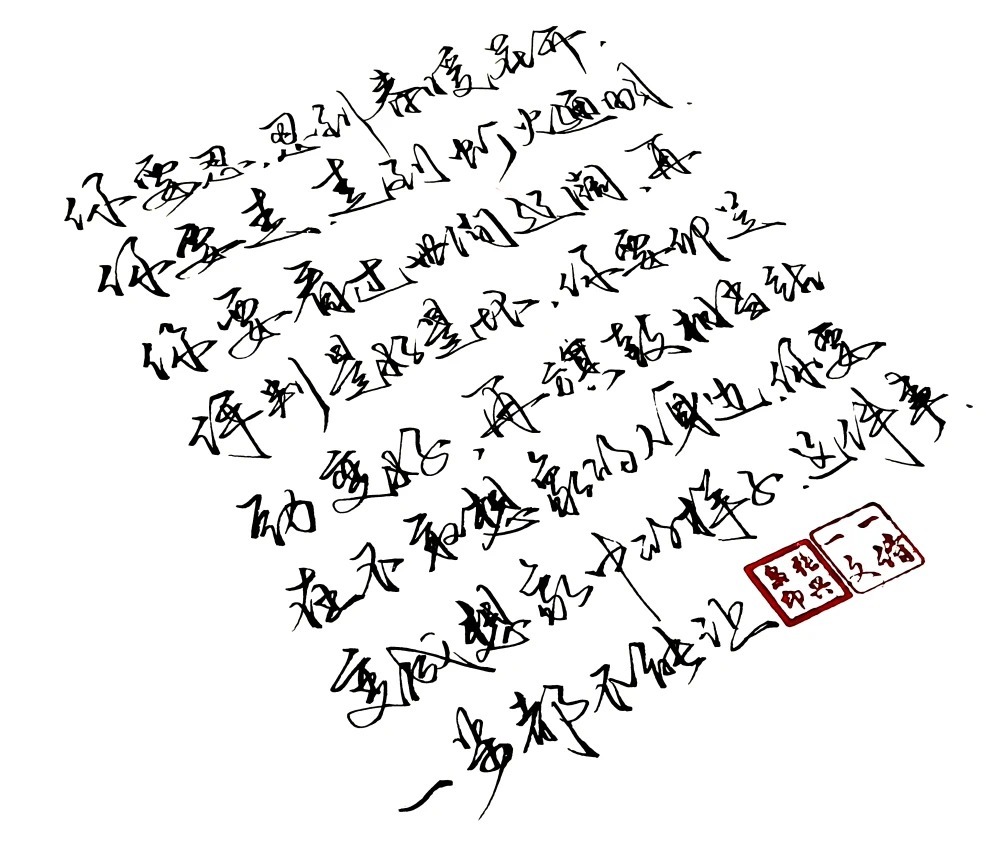 你要忍.忍到春暖花开.
你要走.走到灯火通明.
你要看过世间辽阔.再
评判是好是坏.你要卯足
劲变好.再旗鼓相当站
在不敢想象的人身边.你要
变成想象中的样子.这件事.
一步都不能让